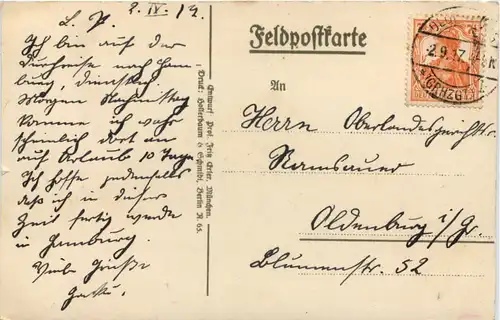 2. IV. 19.
L. P.
Ich bin auf der
Durchreise nach Ham-
burg, Dienstag
Morgen Nachmittag
komme ich wahr
scheinlich dort an
auf Urlaub 10 Tage.
Ich hoffe jedenfalls
daß ich in dieser
Zeit fertig werde
in Hamburg.
Viele Grüße
Entwurf: Prof. Fritz Erler, München.
Druck: Hollerbaum & Schmidt, Berlin N. 65.
Feldpostkarte
2.9.17
(GRHZGT)
An
Herrn Oberlandesgerichtsr.
Ramsauer
Oldenburg i/Gr.
Blumenstr. 52